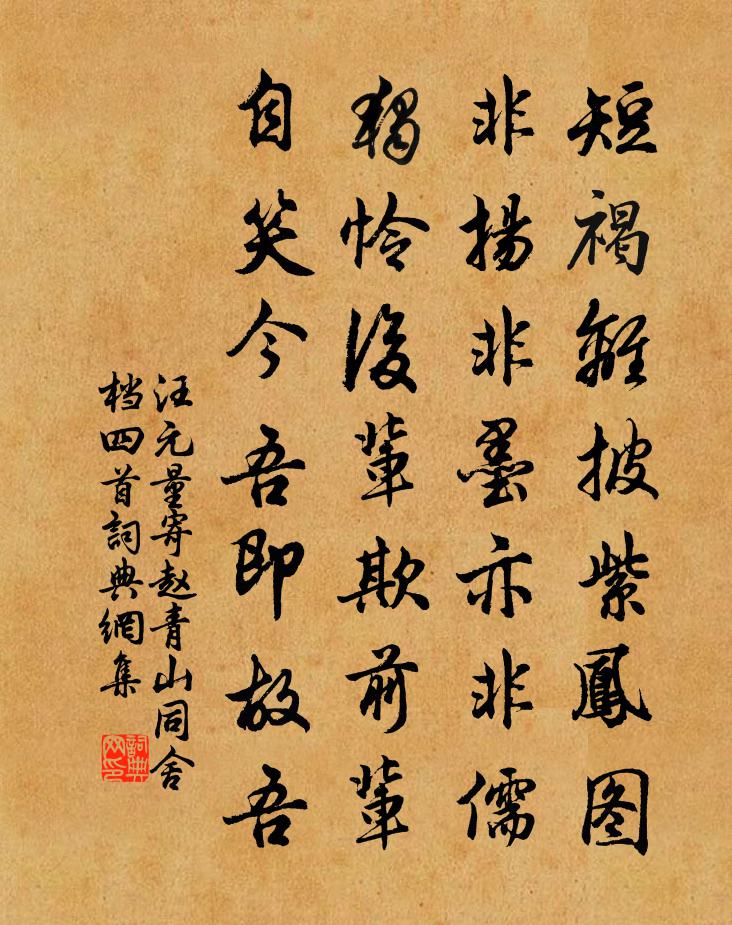 短褐離披紫鳳图
非揚非墨亦非儒
獨怜後輩欺前輩
自笑今吾即故吾
汪元量寄赵青山同舍
档四首詞典網集
詞典
网印